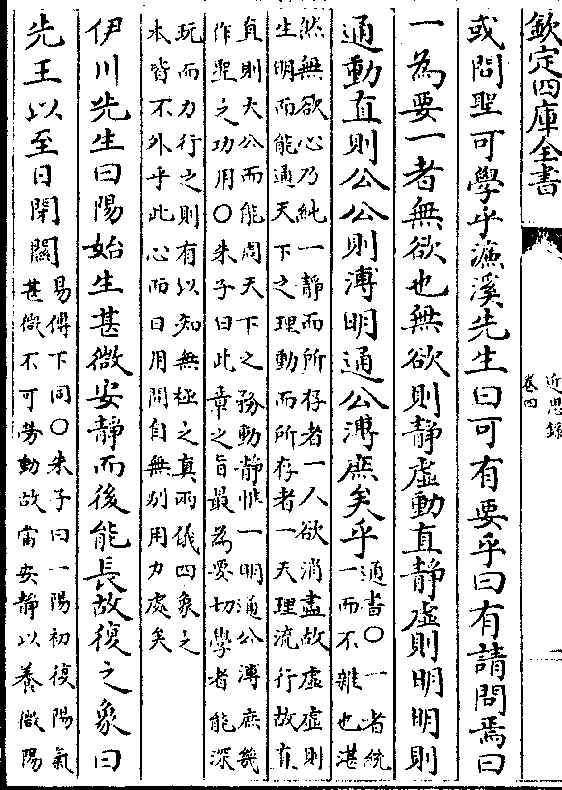 欽定四庫全書
近思錄
卷四
一
或問聖可學乎濂溪先生曰可有要乎曰有請問焉曰
一為要一者無欲也無欲則靜虛動直靜虛則明明則
通動直則公公則溥明通公溥庶矣乎
通書○一者純
一而不雜也湛
然無欲心乃純一靜而所存者一人欲消盡故虛虛則
生明而能通天下之理動而所存者一天理流行故直
直則大公而能周天下之務動靜惟一明通公溥庶幾
作聖之功用○朱子曰此章之旨最為要切學者能深
玩而力行之則有以知無極之真兩儀四象之
本皆不外乎此心而日用間自無別用力處矣
伊川先生曰陽始生甚微安靜而後能長故復之象曰
先王以至日閉關
易傳下同○朱子曰一陽初復陽氣
甚微不可勞動故當安靜以養微陽